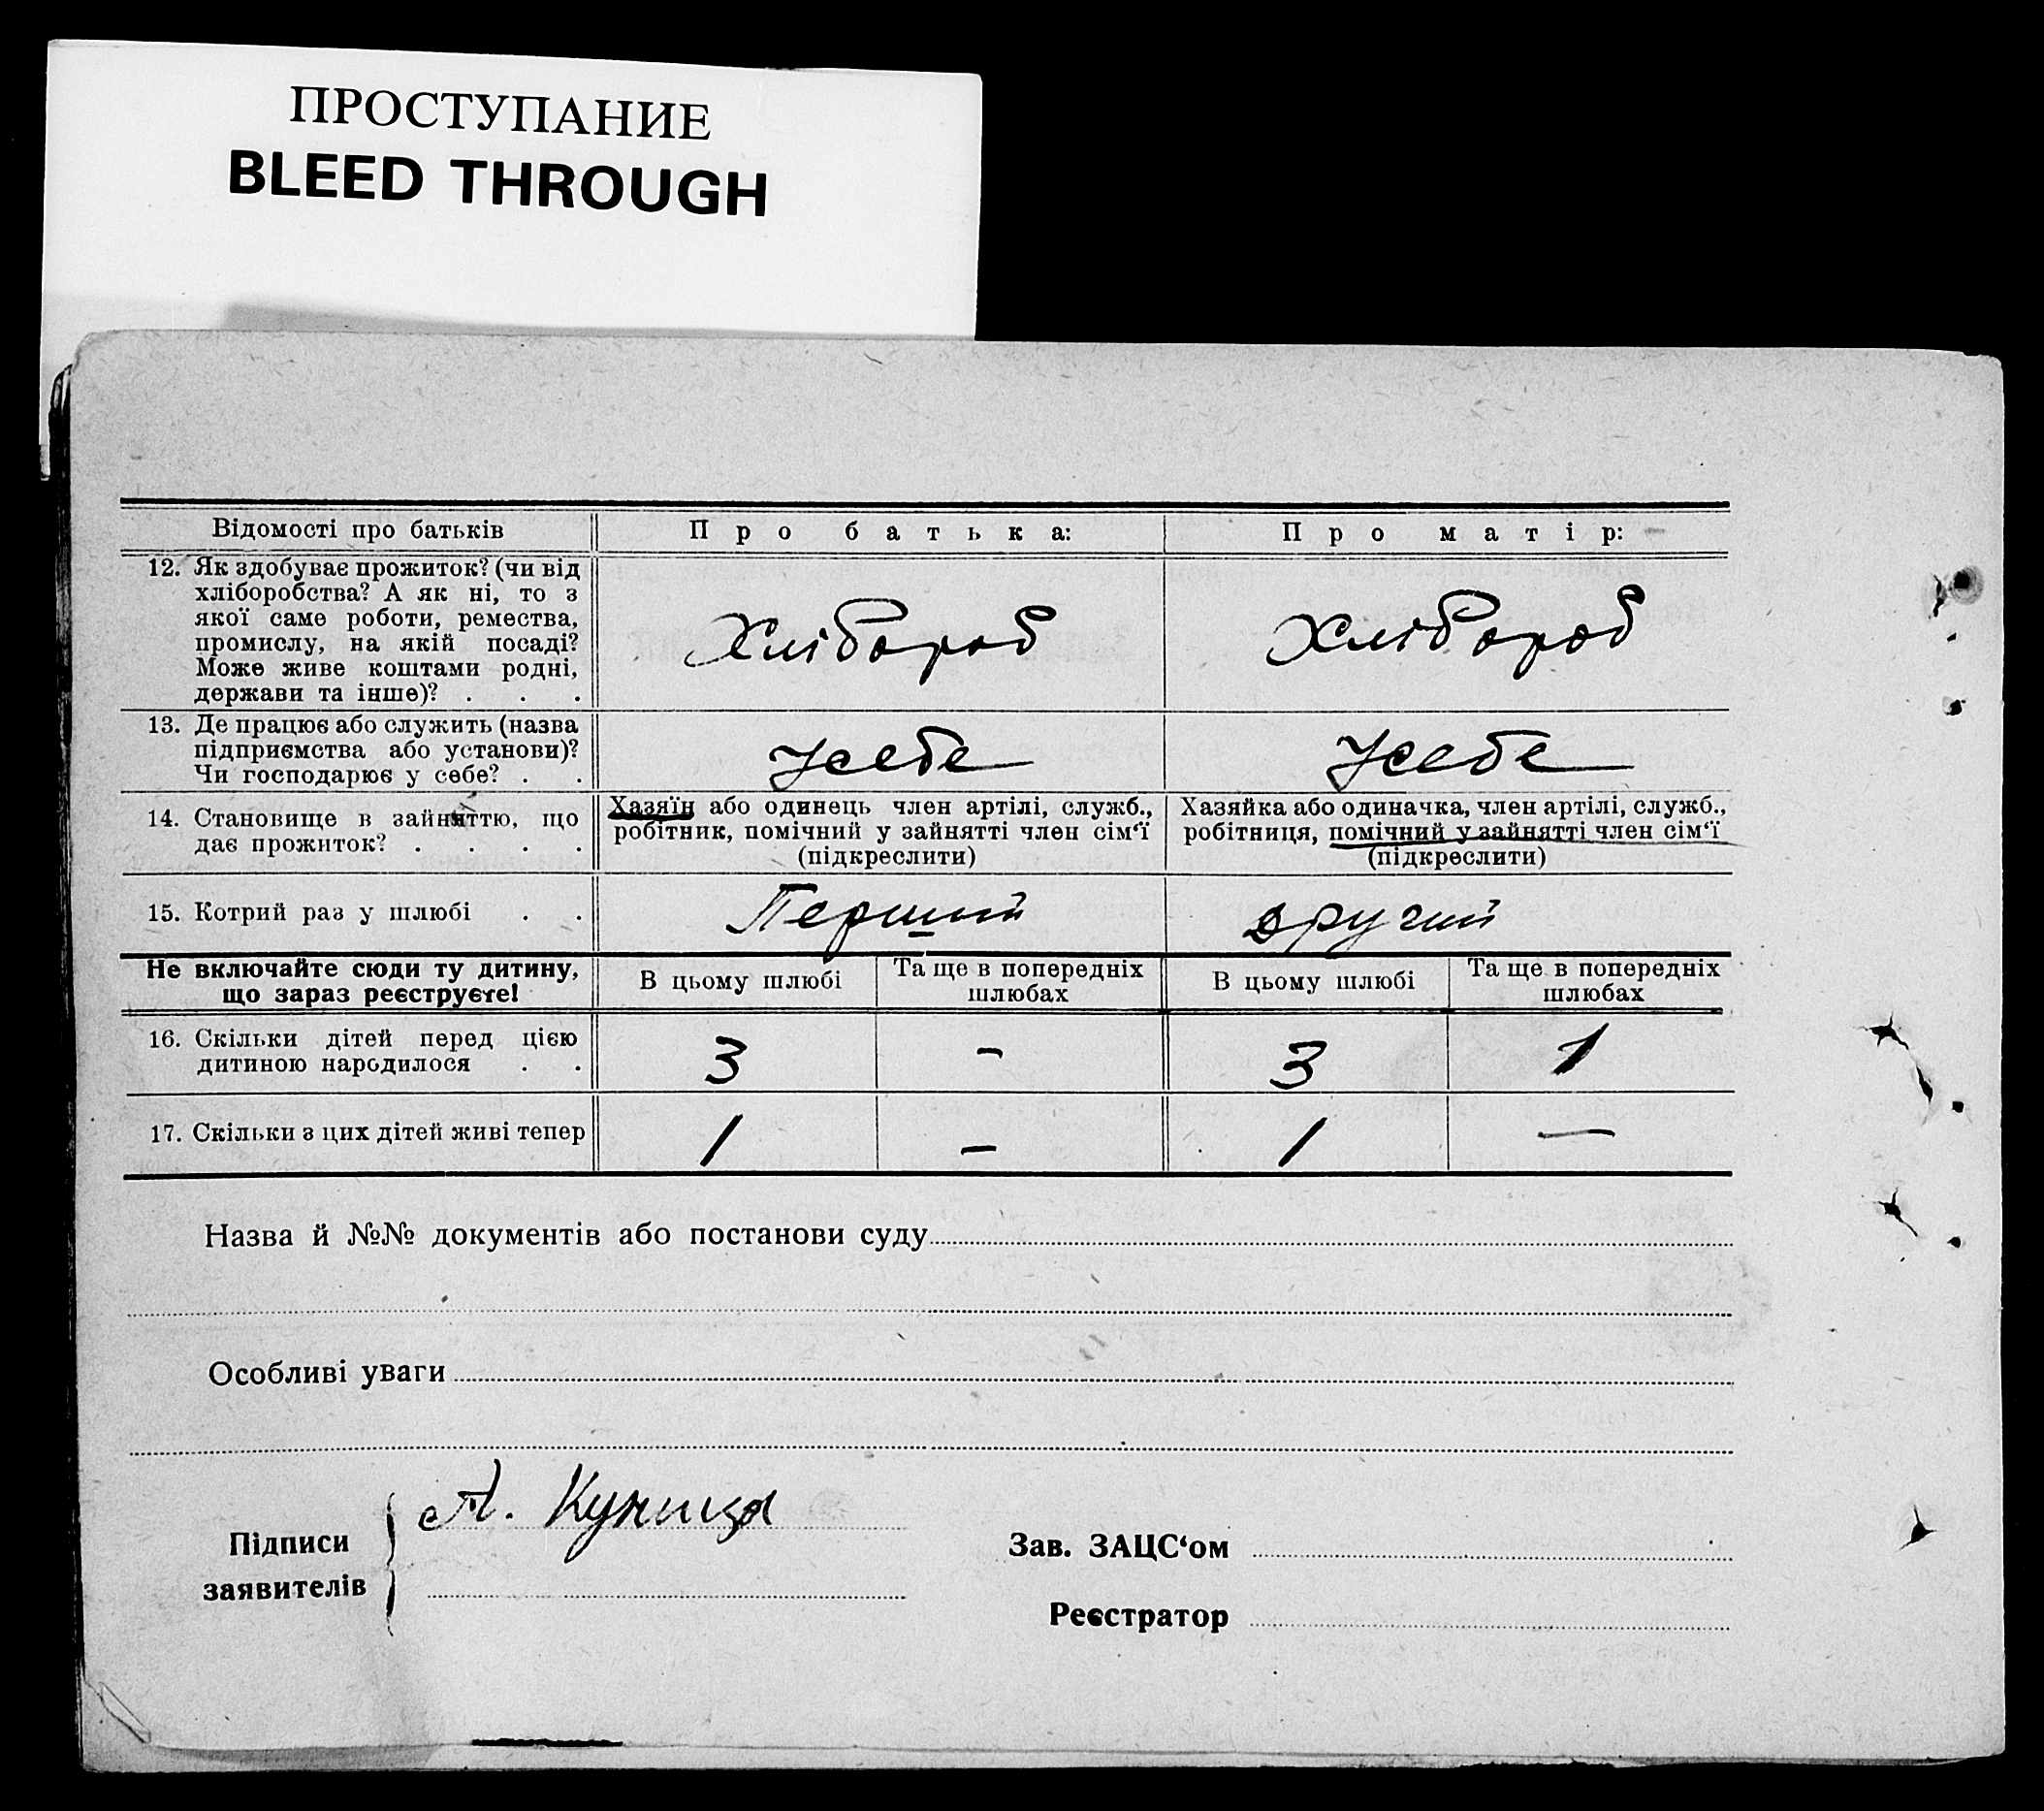 ПРОСТУПАНИЕ
BLEED THROUGH
Відомості про батьків
Про батька:
Про матір:
12. Як здобуває прожиток? (чи від
хліборобства? А як ні, то з
якої саме роботи, ремества,
промислу, на якій посаді?
Може живе коштами родні,
держави та інше)? . . .
Хлібороб
Хлібороб
13. Де працює або служить (назва
підприємства або установи)?
Чи господарює у себе? . .
У себе
У себе
14. Становище в зайняттю, що
дає прожиток? . . . .
Хазяїн або одинець член артілі, служб.,
робітник, помічний у зайнятті член сім‘ї
(підкреслити)
Хазяйка або одиначка, член артілі, служб.,
робітниця, помічний у зайнятті член сім‘ї
(підкреслити)
15. Котрий раз у шлюбі . .
Перший
Другий
Не включайте сюди ту дитину,
що зараз реєструєте!
В цьому шлюбі
Та ще в попередніх
шлюбах
В цьому шлюбі
Та ще в попередніх
шлюбах
16. Скільки дітей перед цією
дитиною народилося . .
3
-
3
1
17. Скільки з цих дітей живі тепер
1
-
1
-
Назва й №№ документів або постанови суду
Особливі уваги
Підписи
заявителів
А. Куница
Зав. ЗАЦС‘ом
Реєстратор